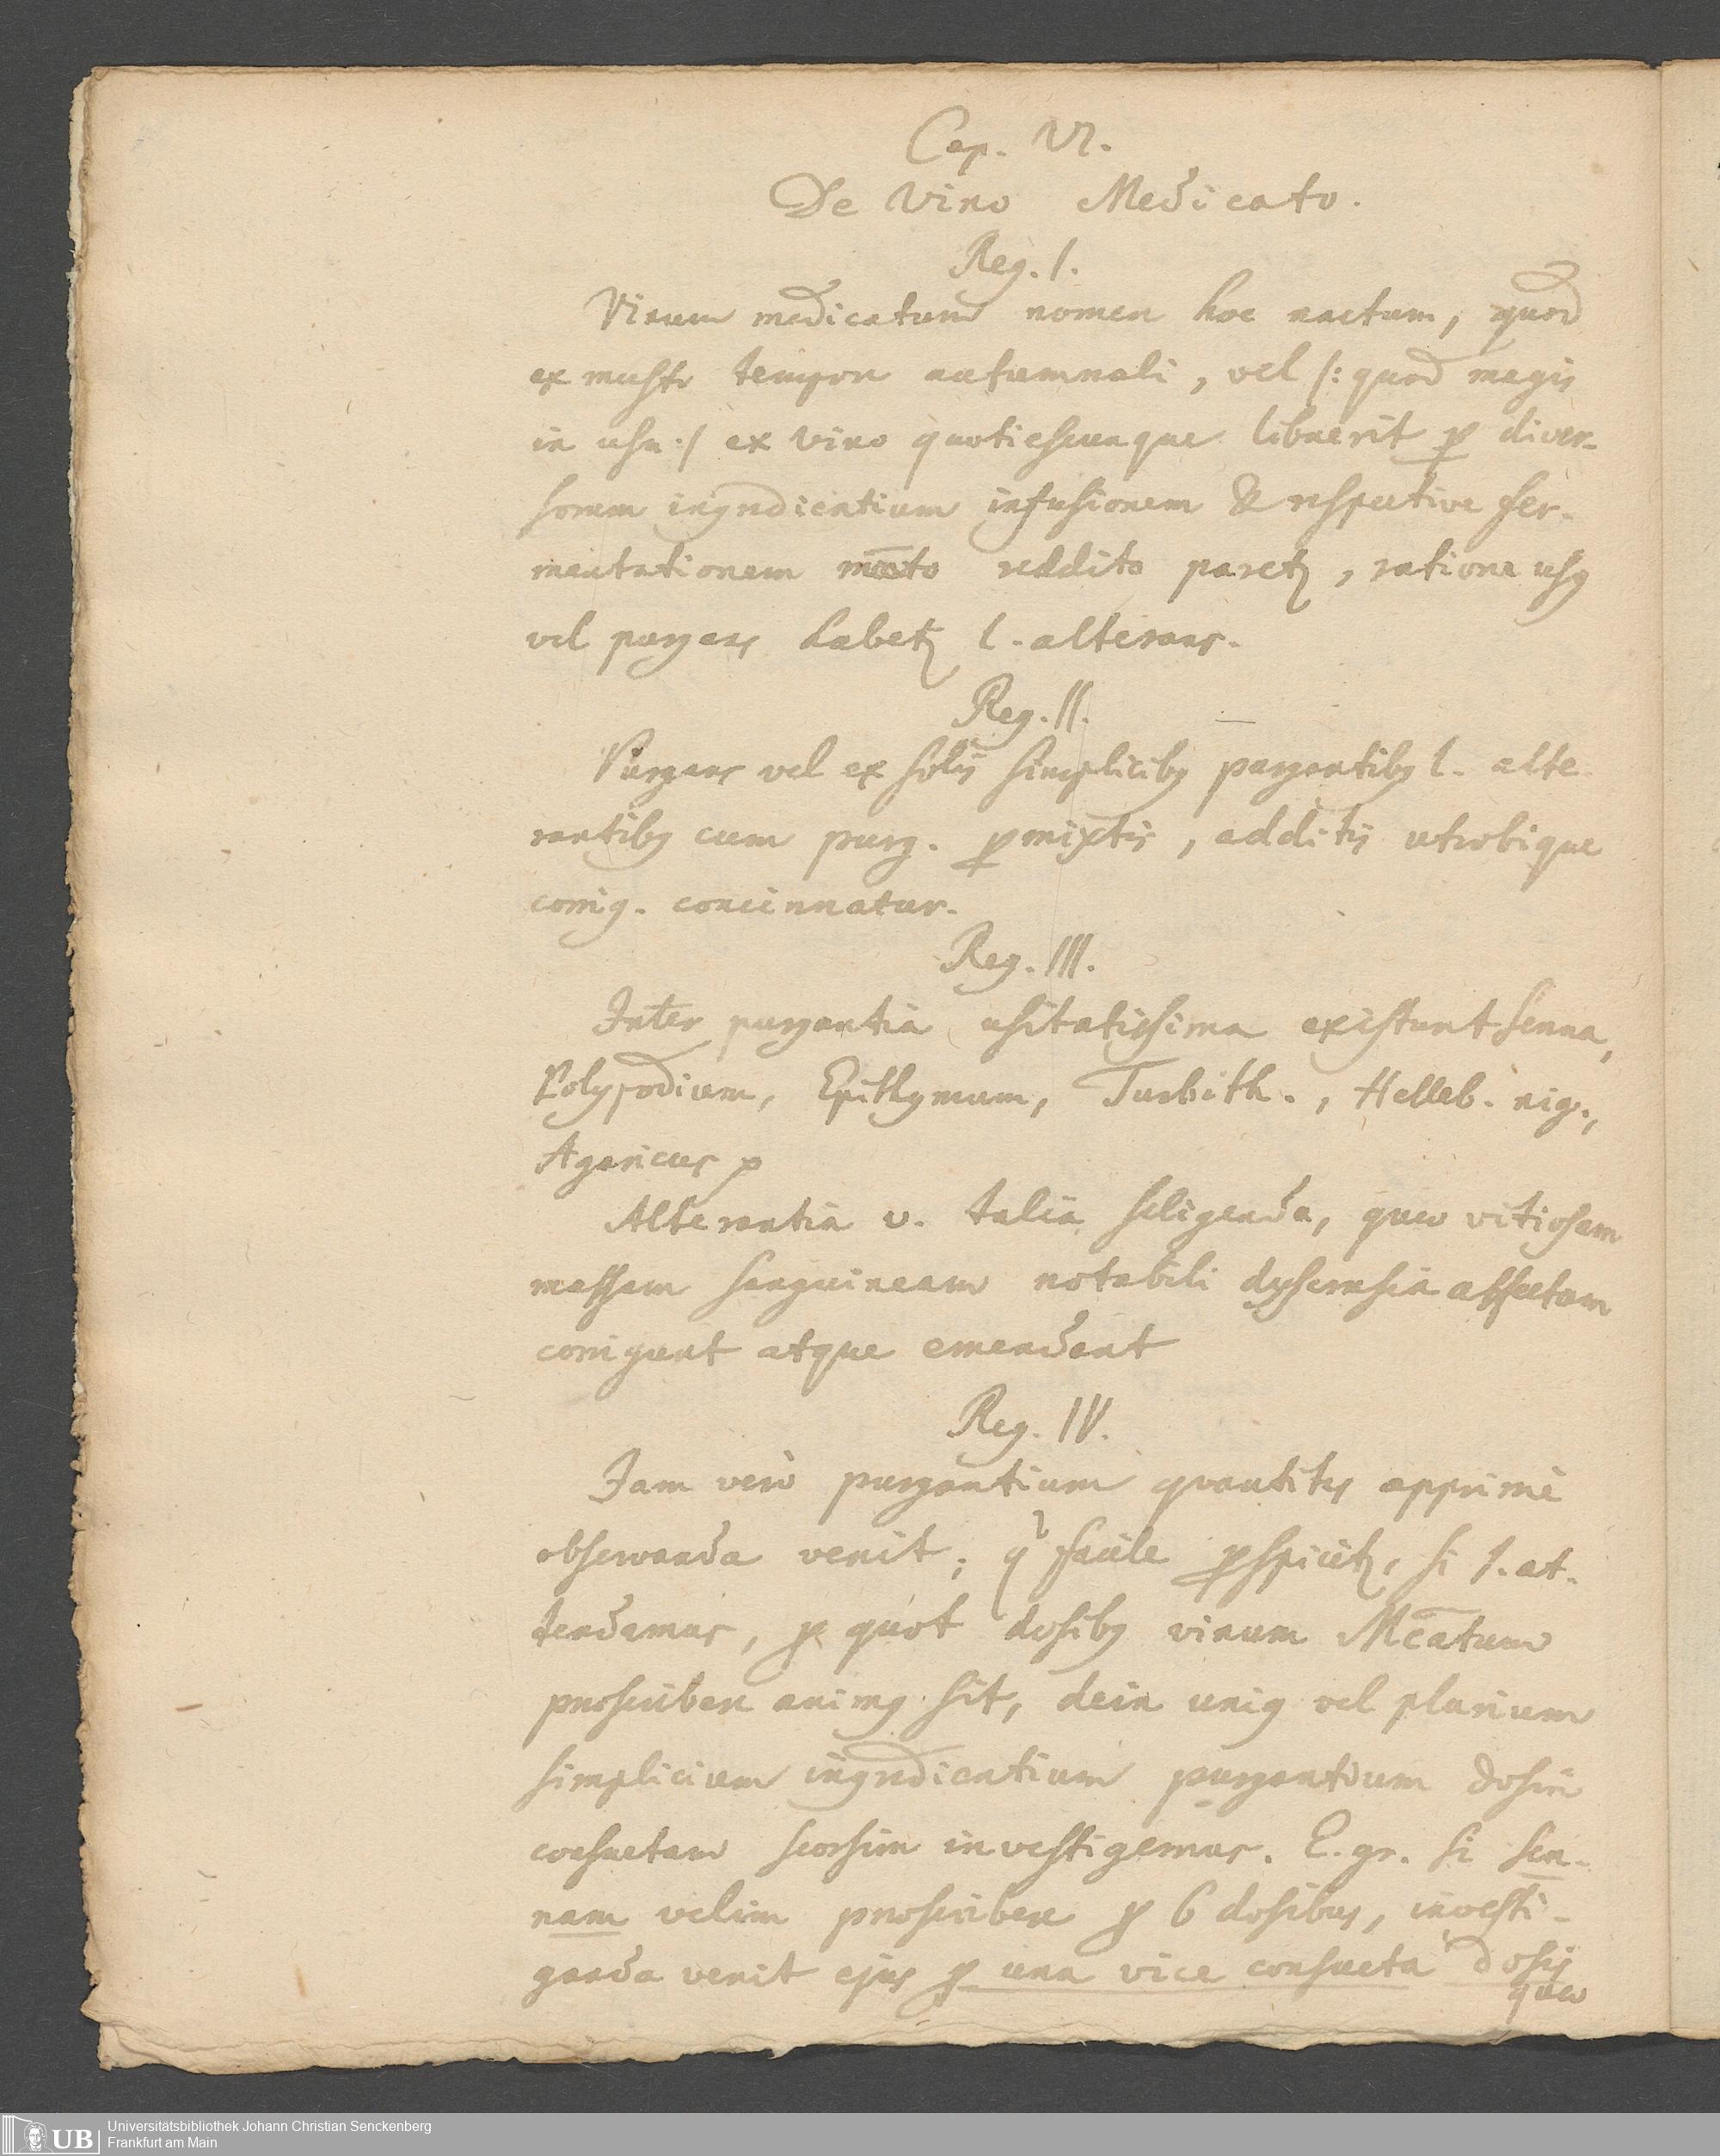 Cap. VI.
De Vino Medicato.
Reg. I.
Vinum medicatum nomen hoc nactum, quod
ex musto tempore autumnali, vel /: quod magis
in usu :/ ex vino quotiescunque libuerit p diver-
sorum ingredientium infusionem & respective fer-
mentationem mcato reddito paretʒ, ratione usꝰ
vel purgans habetʒ l. alterans.
Reg. II.
Purgans vel ex solis simplicibꝰ purgantibꝰ l. alte
rantibꝰ cum purg. pmixtis, additis utrobique
corrig. concinnatur.
Reg. III.
Inter purgantia usitatissima existunt senna,
Polypodium, Epithymum, Turbith., Helleb. nig.,
Agaricus p
Alterantia v. talia seligenda, quæ vitiosam
massam sanguineam notabili dyscrasia affectam
corrigunt atque emendant
Reg. IV.
Jam verò purgantium quantitas apprimè
observanda venit; q facile pspicitʒ, si 1. at-
tendamus, p quot dosibꝰ vinum Mcatum
præscribere animꝰ sit, dein uniꝰ vel plurium
simplicium ingredientium purgantium dosin
consuetam seorsim investigemus. E. gr. si sen-
nam velim præscribere p 6 dosibus, investi-
ganda venit ejus p una vice consueta dosis
quæ
Universitätsbibliothek Johann Christian Senckenberg
Frankfurt am Main
UB